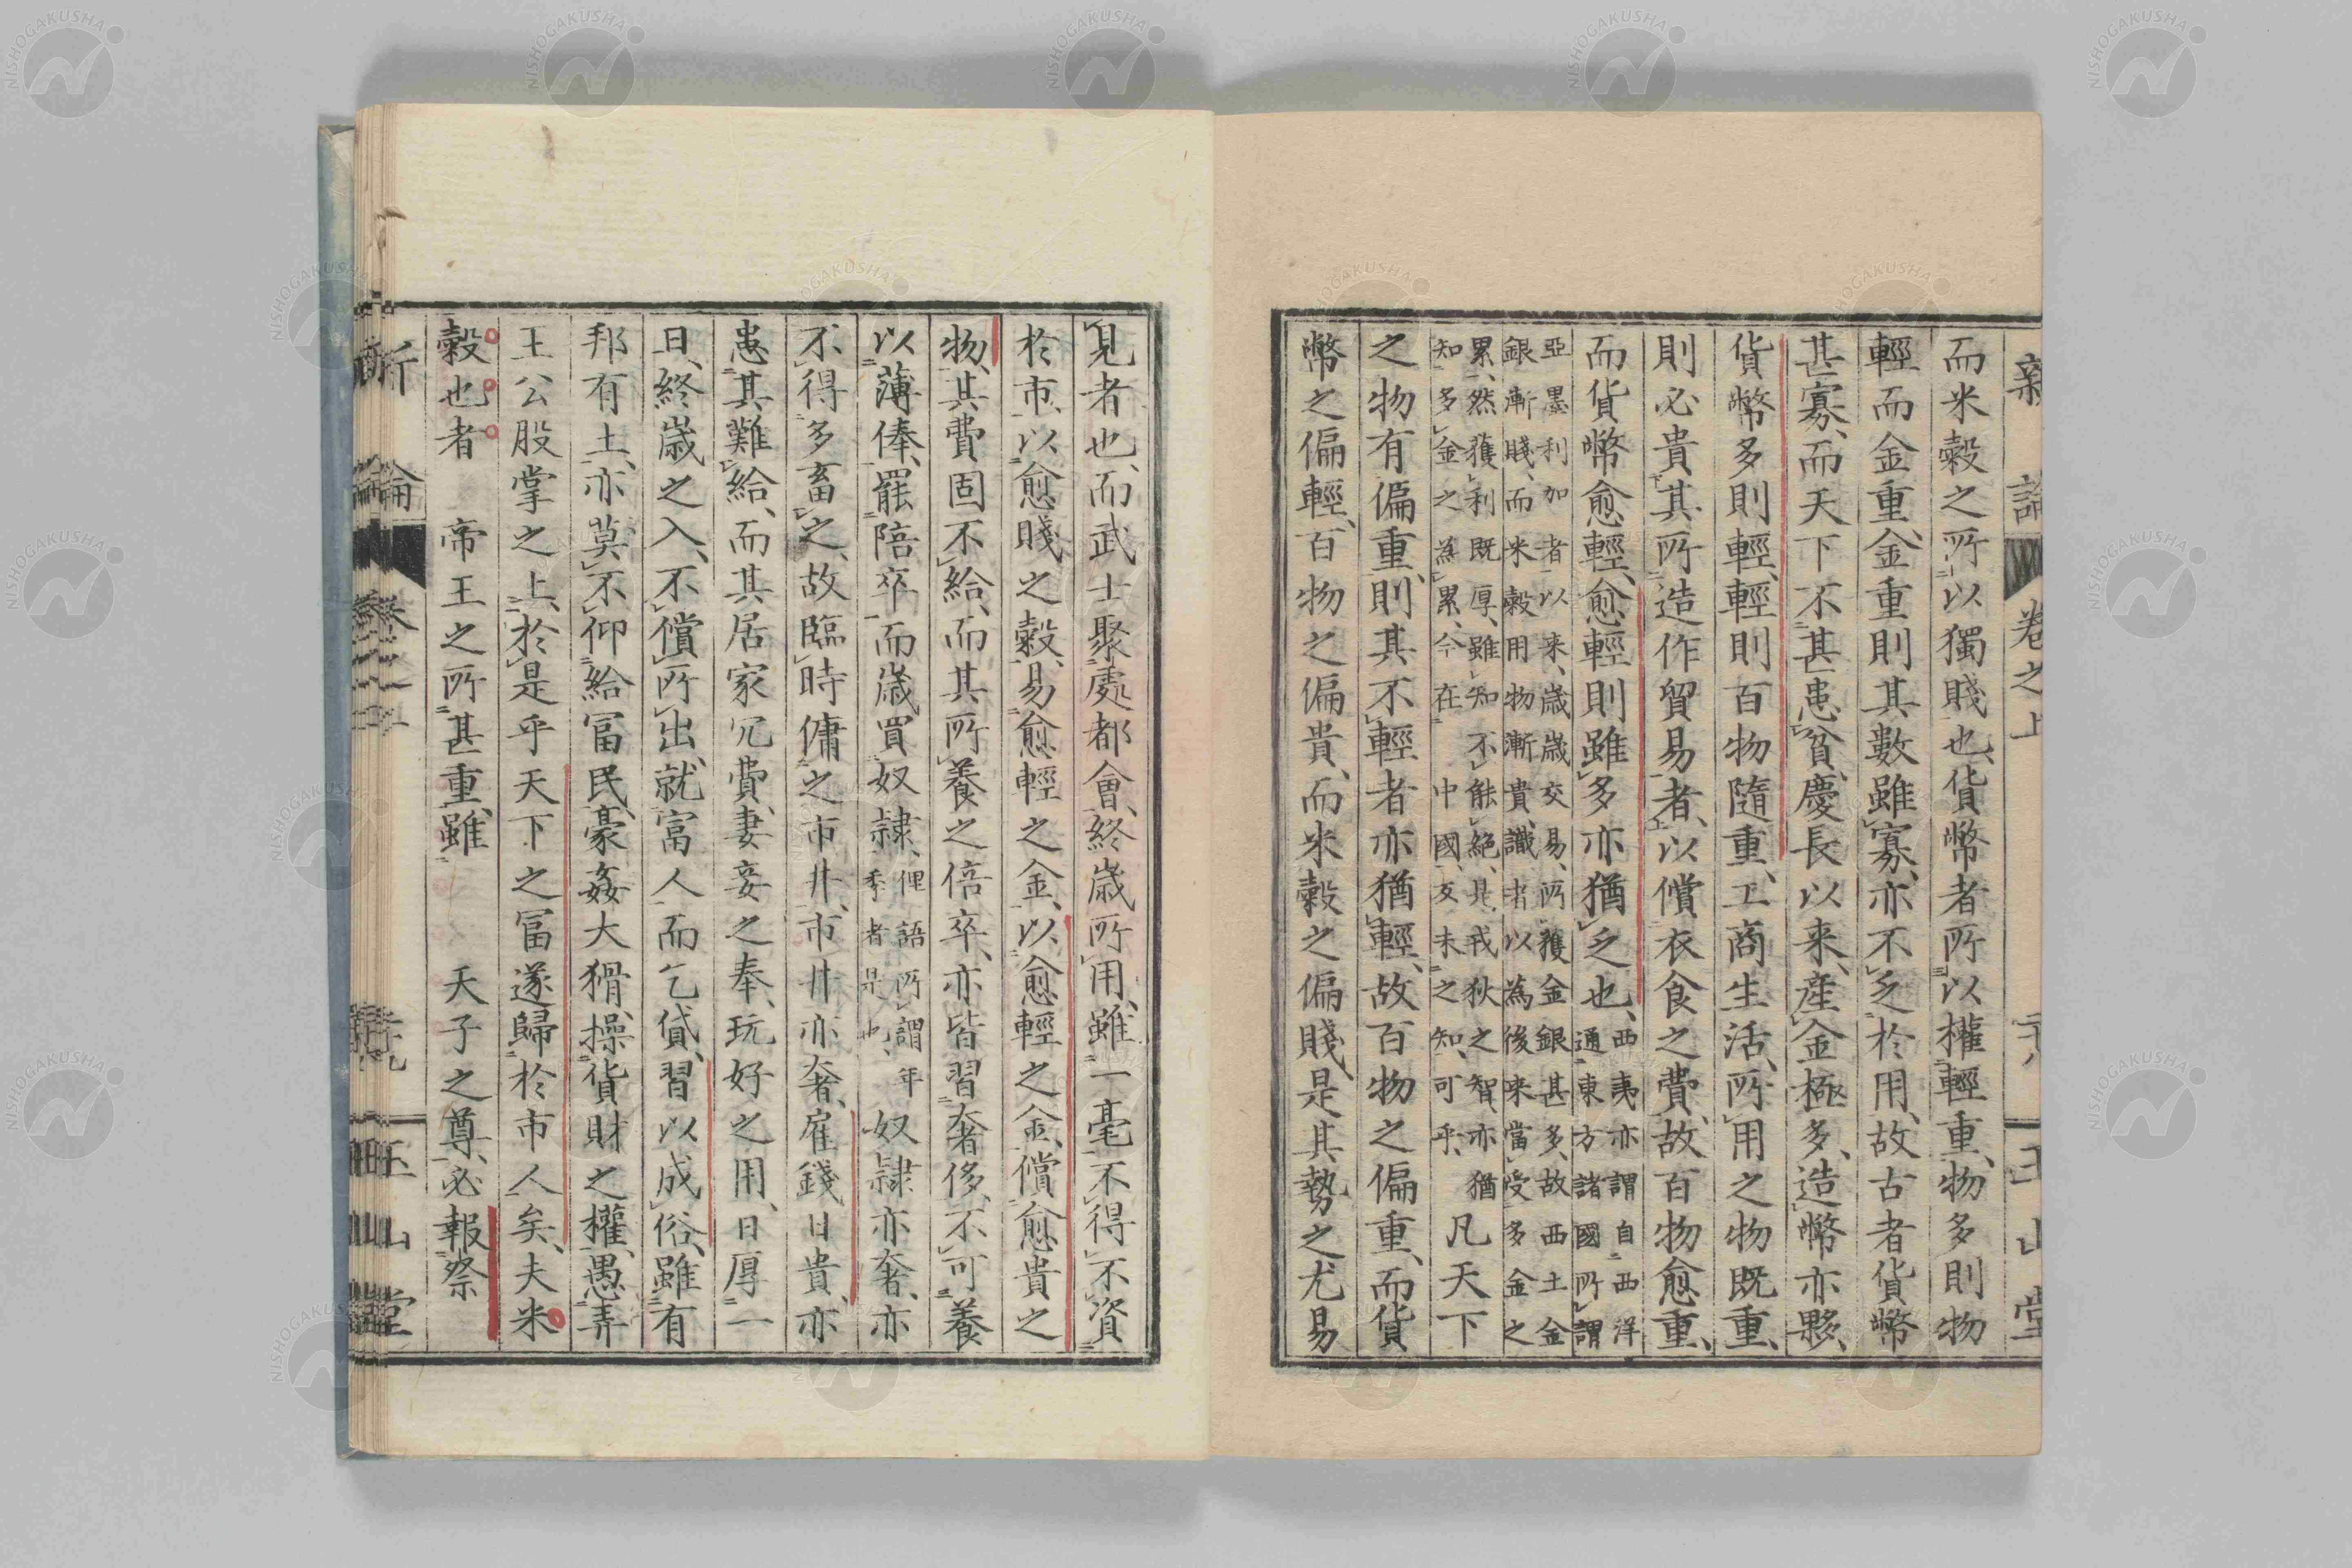 新論 卷之上 二十八 玉山堂
而米穀之所以獨賤也、貨幣者所以權輕重、物多則物
輕而金重、金重則其數雖寡、亦不乏於用、故古者貨幣
甚寡、而天下不甚患貧、慶長以来、產金極多、造幣亦夥、
貨幣多則輕、輕則百物隨重、工商生活、所用之物既重、
則必貴其所造作貿易者、以償衣食之費、故百物愈重、
而貨幣愈輕、愈輕則雖多亦猶乏也、西夷亦謂自西洋
通東方諸國所謂
亞墨利加者以来、歲歲交易、所獲金銀甚多、故西土金
銀漸賤、而米穀用物漸貴、識者以為後来當受多金之
累、然獲利既厚、雖知不能絶、是戎狄之智、亦猶
知多金之為累、今在中國、反未之知、可乎、凡天下
之物有偏重、則其不輕者亦猶輕、故百物之偏重、而貨
幣之偏輕、百物之偏貴、而米穀之偏賤、是其勢之尤易
見者也、而武士聚處都會、終歲所用、雖一毫不得不資
於市、以愈賤之穀、易愈輕之金、以愈輕之金、償愈貴之
物、其費固不給、而其所養之倍卒、亦皆習奢侈、不可養
以薄俸、罷陪卒而歲買奴隷、俚語所謂年
季者是也、奴隷亦奢、亦
不得多畜之、故臨時傭之市井、市井亦奢、雇錢日貴、亦
患其難給、而其居家冗費、妻妾之奉、玩好之用、日厚一
日、終歲之入、不償所出、就富人而乞貸、習以成俗、雖有
邦有土、亦莫不仰給富民、豪姦大猾、操貨財之權、愚弄
王公股掌之上、於是乎天下之富遂歸於市人矣、夫米
穀也者 帝王之所甚重、雖 天子之尊、必報祭
新論 卷之上 玉山堂